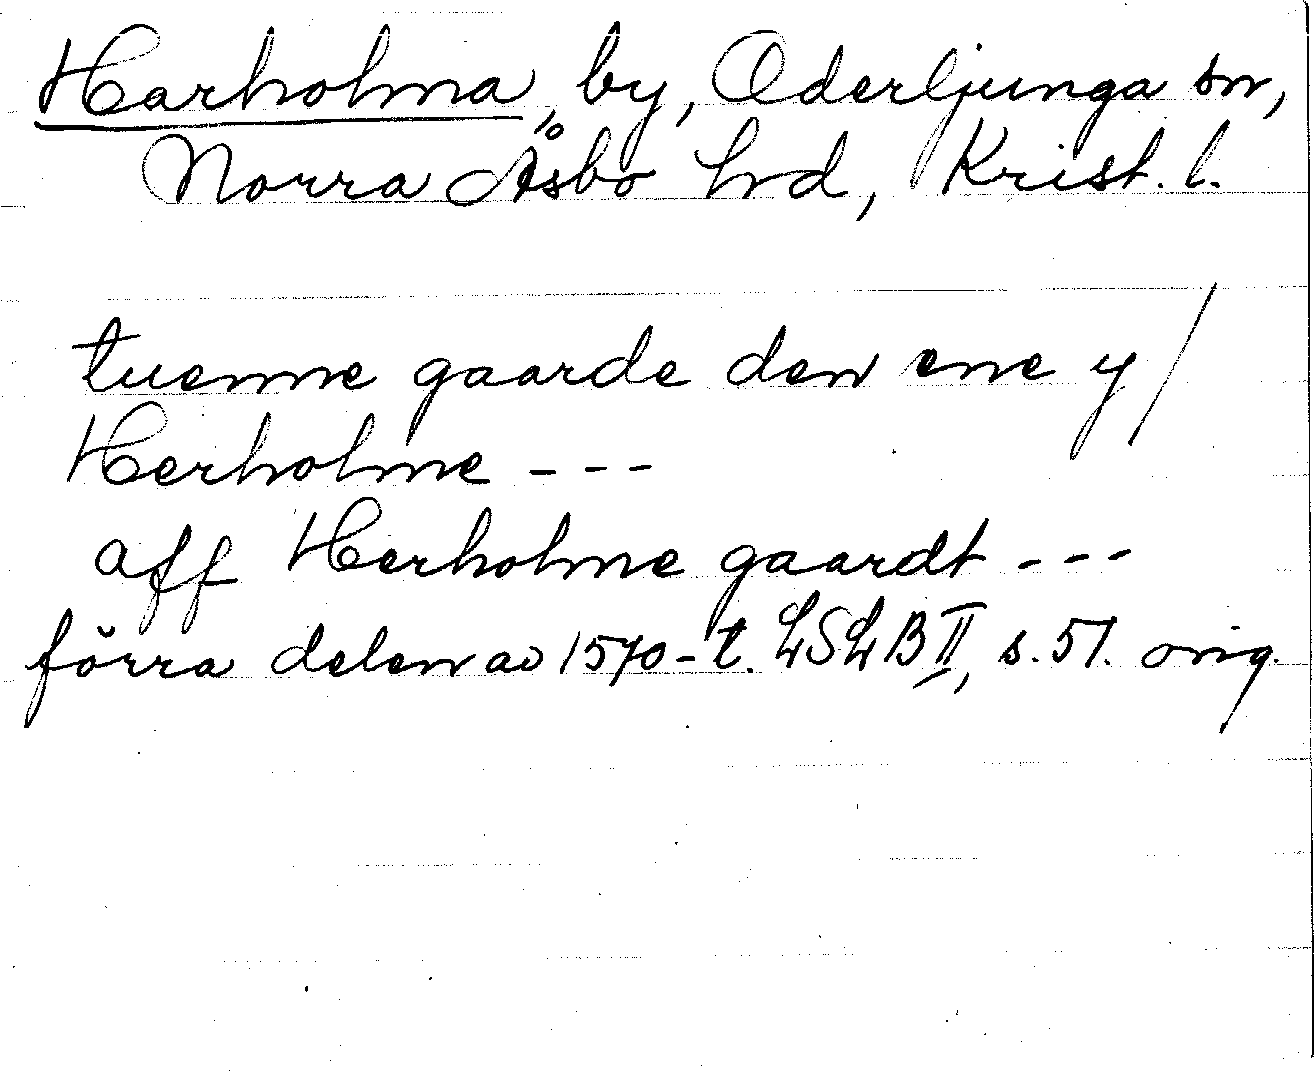 Harholma, by, Oderljunga sn,
Norra Åsbo hrd, Krist. l.
tuenne gaarde den ene y /
Herholme - - -
aff Herholme gaardt - - -
förra delen av 1570-t. LSLB II, s. 51. orig.